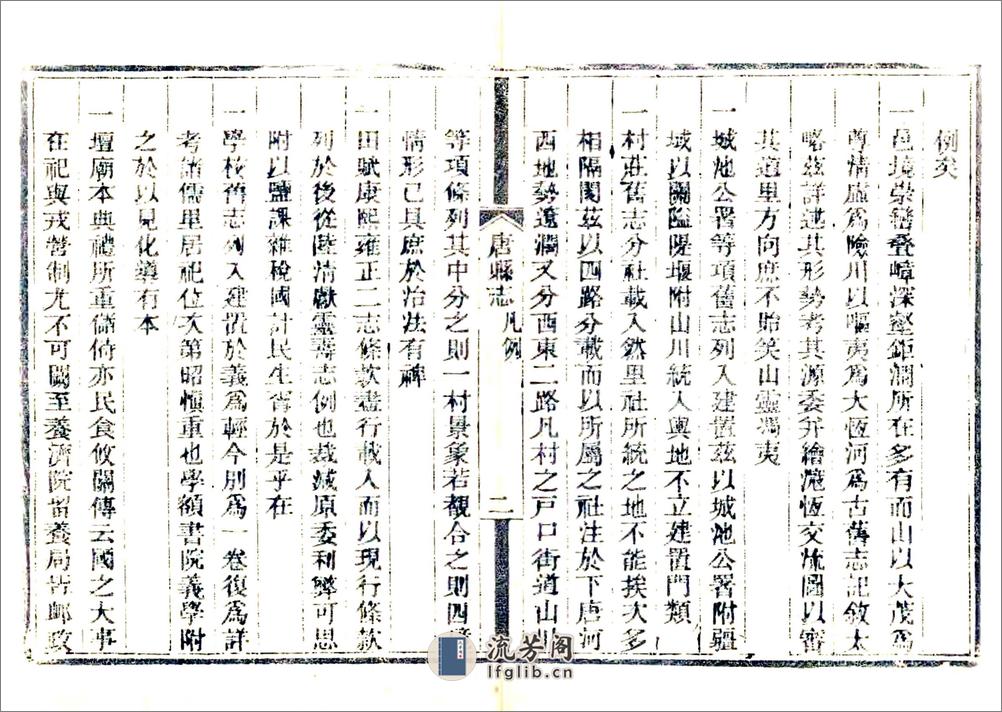 例矣
一邑境崇巒疊嶂深壑鉅澗所在多有而山以大茂爲
尊情虛爲險川以嘔夷爲大恆河爲古舊志記敘太
略茲詳述其形勢考其源委幷繪滱恆交流圖以審
其道里方向庶不貽笑山靈馮夷
一城池公署等項舊志列入建置茲以城池公署附疆
域以關隘隄堰附山川統入輿地不立建置門類
一村莊舊志分社載入然里社所統之地不能挨次多
相隔閡茲以四路分載而以所屬之社注於下唐河
西地勢遼濶又分西東二路凡村之戸口街道山川
唐縣志
凡例
二
等項條列其中分之則一村景象若覩合之則四
情形已具庶於治法有裨
一田賦康熙雍正二志條款盡行載入而以現行條款
列於後從陸清獻靈壽志例也裁減原委利弊可思
附以鹽課雜稅國計民生胥於是乎在
一學校舊志列入建置於義爲輕今別爲一卷復爲詳
考諸儒里居祀位次第昭愼重也學額書院義學附
之於以見化導有本
一壇廟本典禮所重儲偫亦民食攸關傳云國之大事
在祀與戎營制尤不可闕至養濟院留養局皆卹政
流芳阁
lfglib.cn